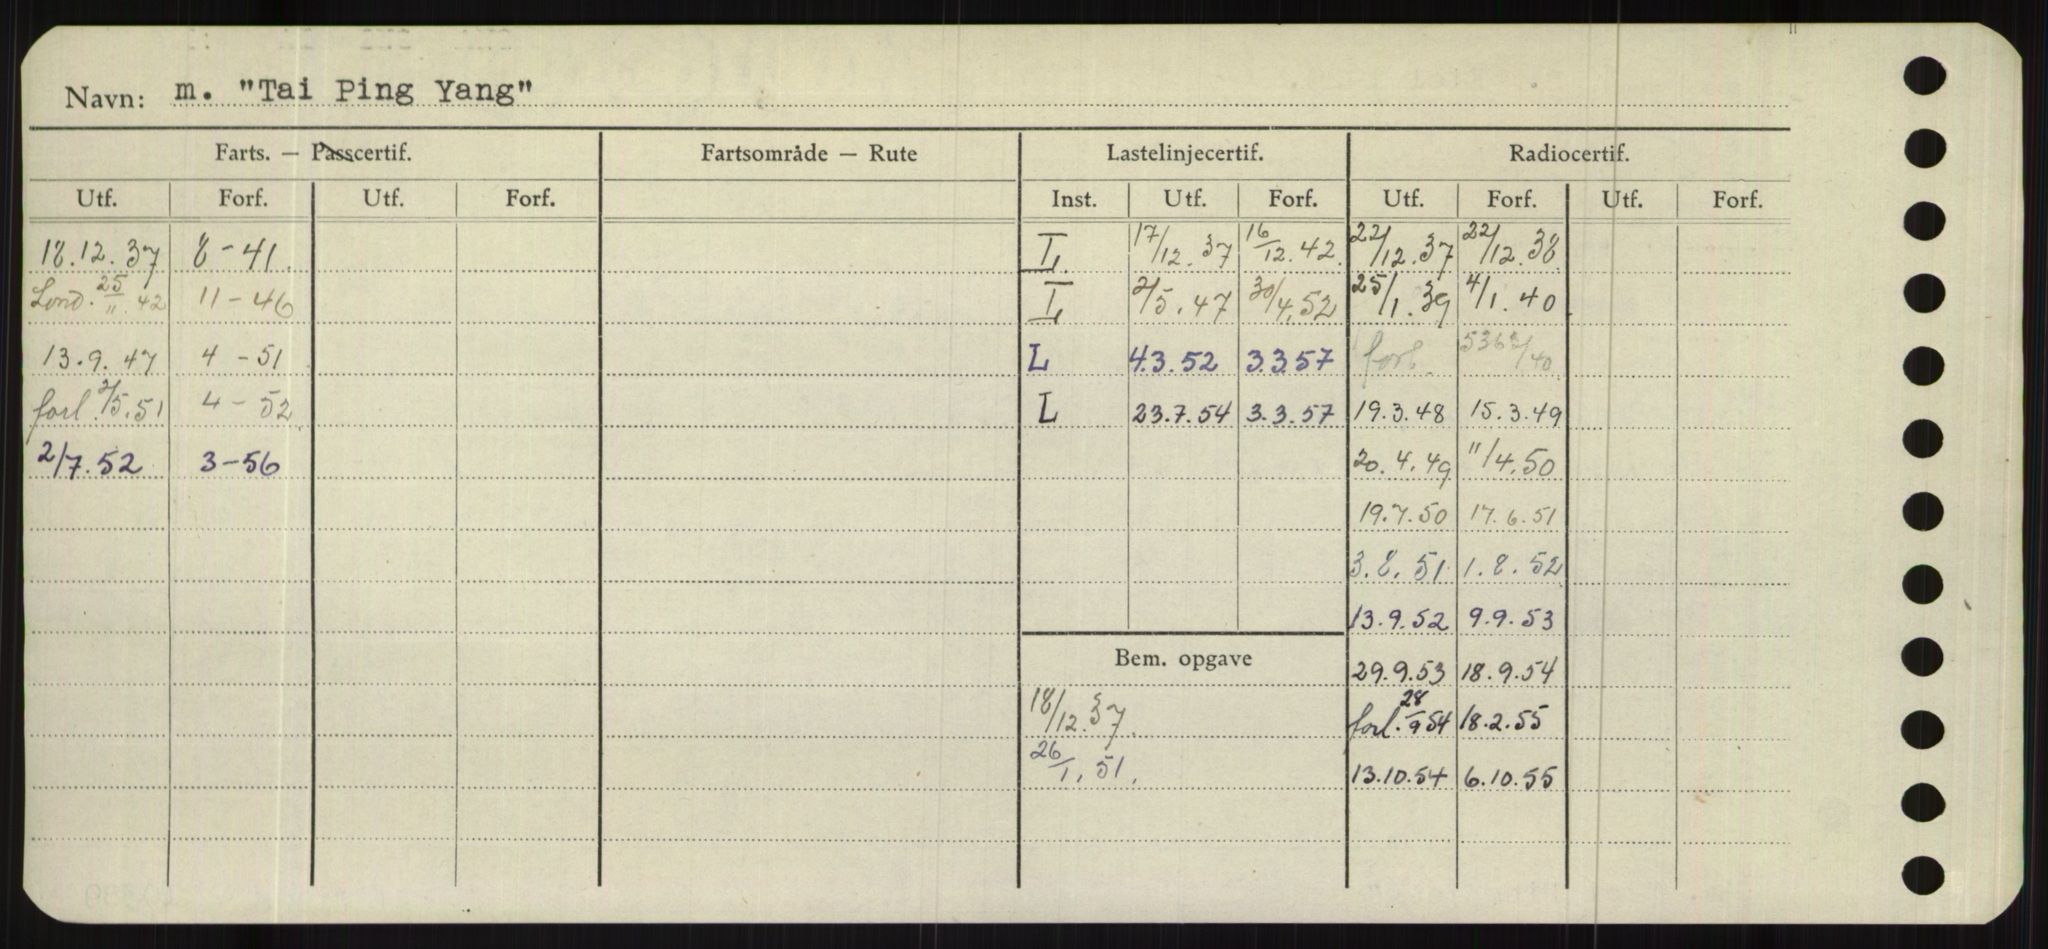 Navn: m. "Tai Ping Yang"
Farts. — Passcertif. Fartsområde — Rute Lastelinjecertif. Radiocertif.
Utf. Forf. Utf. Forf. Inst. Utf. Forf. Utf. Forf. Utf. Forf.
18.12.37 8-41. L 17/12.37 16/12.42. 22/12.37 22/12.38
Lond. 25/11.42 11-46 L 2/5.47 30/4.52 25/1.39 4/1.40
13.9.47 4-51 L 4.3.52 3.3.57 forl. /40
forl. 2/5.51 4-52 L 23.7.54 3.3.57 19.3.48 15.3.49
2/7.52 3-56 20.4.49 11/4.50
19.7.50 17.6.51
3.8.51 1.8.52
13.9.52 9.9.53
Bem. opgave 29.9.53 18.9.54
18/12.37. forl. 28/9 54 18.2.55
26/1.51. 13.10.54 6.10.55